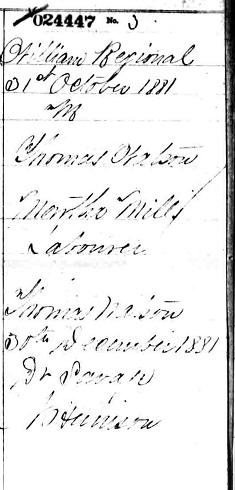 024447 No. 3
William Regional
31st October 1881
M
Thomas Watson
Martha Mills
Labourer
Thomas Watson
30th December 1881
Dr